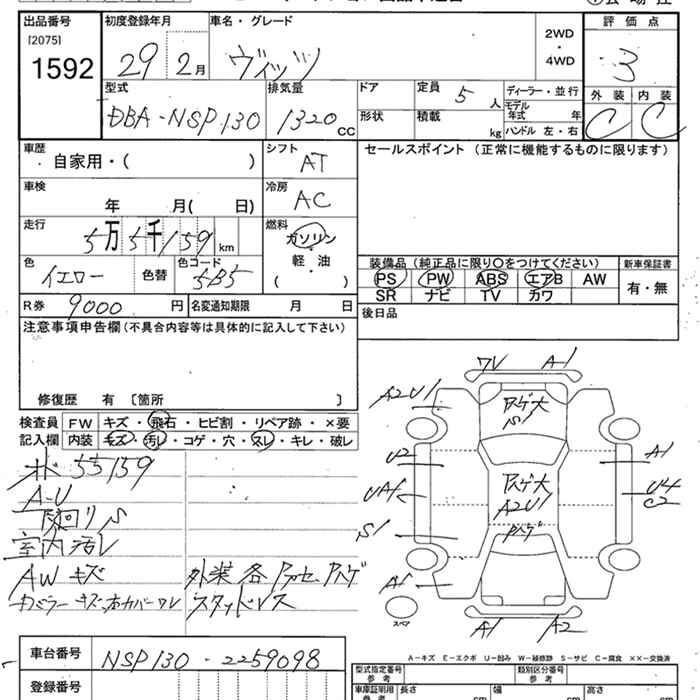 出品番号 初度登録年月 車名・グレード 2WD・4WD 評価点
[2075]
1592 29 2月 ヴィッツ 3
型式 排気量 ドア 定員 5人 ディーラー・並行 外装 内装
DBA-NSP130 1320CC 形状 積載 kg モデル年式 年 C C
ハンドル 左・右
車歴 シフト セールスポイント (正常に機能するものに限ります)
自家用・( ) AT
車検 冷房
年 月( 日) AC
走行 燃料
5万5千159km ガソリン・軽・油
( )
色 色替 色コード
イエロー 5B5
装備品 (純正品に限り〇をつけてください) 新車保証書
PS PW ABS エアB AW 有・無
SR ナビ TV カワ
R券 9000円 名変通知期限 月 日
後日品
注意事項申告欄 (不具合内容等は具体的に記入して下さい)
修復歴 有 [箇所 ]
検査員 FW キズ・飛石・ヒビ割・リペア跡・×要
記入欄 内装 キズ・汚レ・コゲ・穴・スレ・キレ・破レ
55159
A-U
下廻りS
室内汚レ
AWキズ
外装各
スタッドレス
ワレ A-1
A2U1 アゲ大 S1
U2 A1
アゲ大 A2U1 U4 C2
S1
A1 A2
スペア
A-キズ E-エクボ U-凹み W-補修跡 S-サビ C-腐食 ××-交換済
車台番号 NSP130-2259098
登録番号
型式指定番号 参考 類別区分番号 参考
車庫証明用 参考 長さ cm 幅 cm 高さ cm